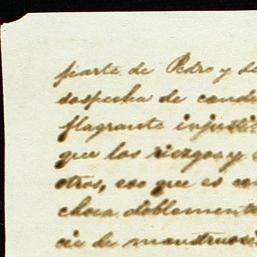 parte de Pedro y de
sospecha de cond
flagrante injustic
que los riezgos y
otros, eso que es con
choca doblemente
cia de monstruosi